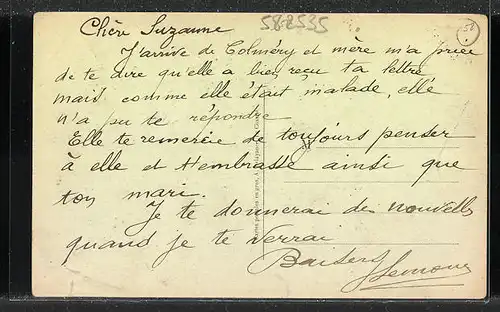 58-2535
Chère Suzanne
J'arrive de Colméry et mère m'a priée
de te dire qu'elle a bien reçu ta lettre
mais comme elle était malade, elle
n'a pu te répondre
Elle te remercie de toujours penser
à elle et t'embrasse ainsi que
ton mari.
Je te donnerai des nouvelles
quand je te verrai
Baisers